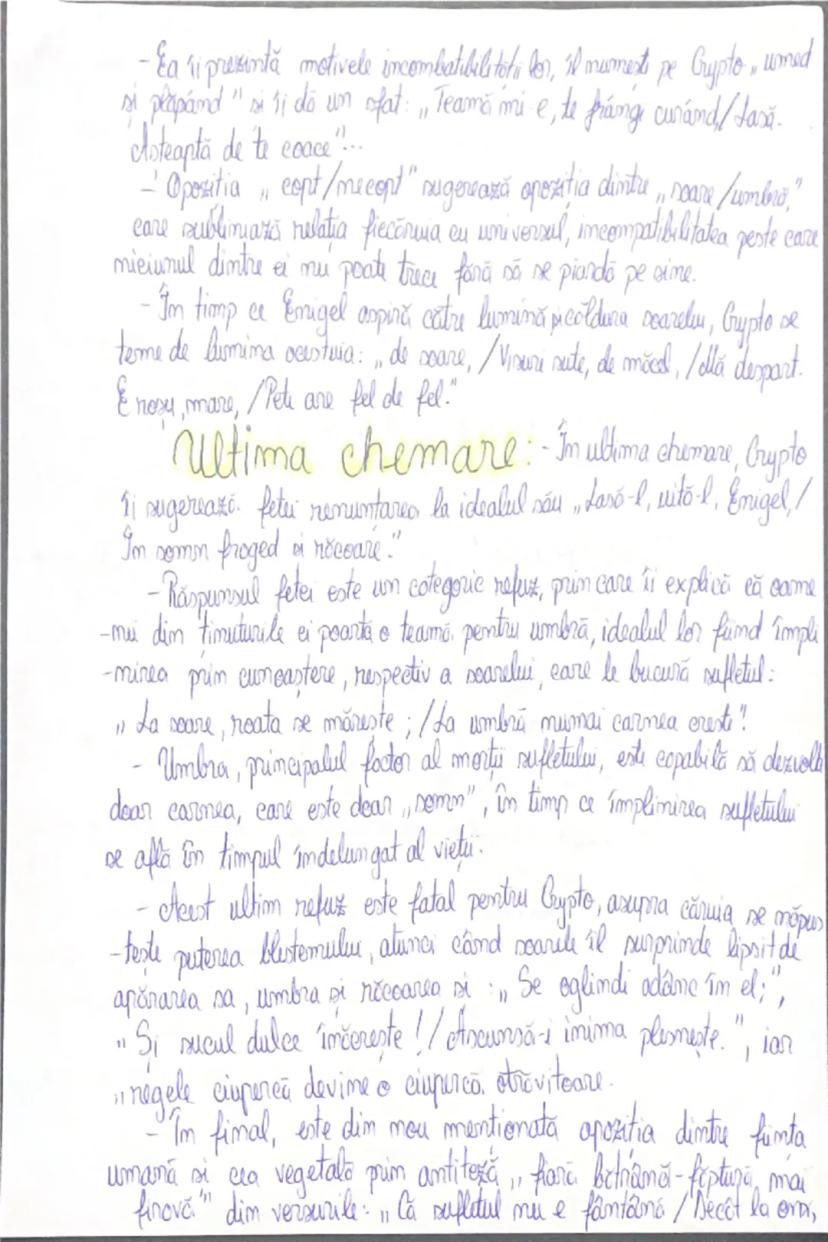 - Ea îi prezintă motivele incombatibilității lor, îl numește pe Crypto „umed
și plăpând" și îi dă un sfat: „Teamă mi-e, te frângi curând,/Lasă.
Așteaptă de te coace"...
- Opoziția „copt/necopt" sugerează opoziția dintre „soare/umbră,"
care subliniază relația fiecăruia cu universul, incompatibilitatea peste care
niciunul dintre ei nu poate trece fără să se piardă pe sine.
- În timp ce Enigel aspiră către lumină și căldura soarelui, Crypto se
teme de lumina acestuia: „de soare, /Visuri sute, de măcel, /Mă despart.
E roșu, mare, /Pete are fel de fel."
Ultima chemare: - În ultima chemare, Crypto
îi sugerează fetei renunțarea la idealul său „Lasă-l, uită-l, Enigel,/
În somn fraged și răcoare."
- Răspunsul fetei este un categoric refuz, prin care îi explică că oame
-nii din ținuturile ei poartă o teamă pentru umbră, idealul lor fiind împli
-nirea prim cunoaștere, respectiv a soarelui, care le bucură sufletul:
„La soare, roata se mărește ; /La umbră numai carnea crește"!
- Umbra, principalul factor al morții sufletului, este capabilă să dezvolte
doar carnea, care este doar „somn", în timp ce împlinirea sufletului
se află în timpul îndelungat al vieții.
- Acest ultim refuz este fatal pentru Crypto, asupra căruia se năpus
-tește puterea blestemului, atunci când soarele îl surprinde lipsit de
apărarea sa, umbra și răcoarea și : „Se oglindi adânc în el;",
„Și sucul dulce înăcrește ! /Ascunsă-i inima plesnește.", iar
„regele ciupercă devine o ciupercă otrăvitoare.
- În final, este din nou menționată opoziția dintre ființa
umană și cea vegetală prin antiteză „fiară bătrână - făptură mai
firavă" din versurile: „Că sufletul nu e fântână / Decât la om,